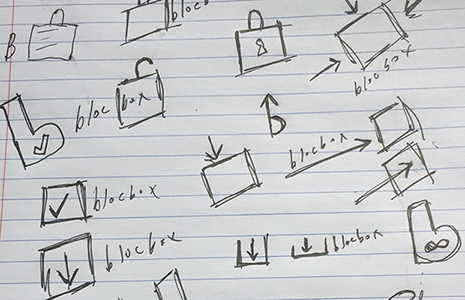 blocbox
B
8
blocbox
bloc box
b
blocbox
blocbox
blocbox
blocbox
b
b